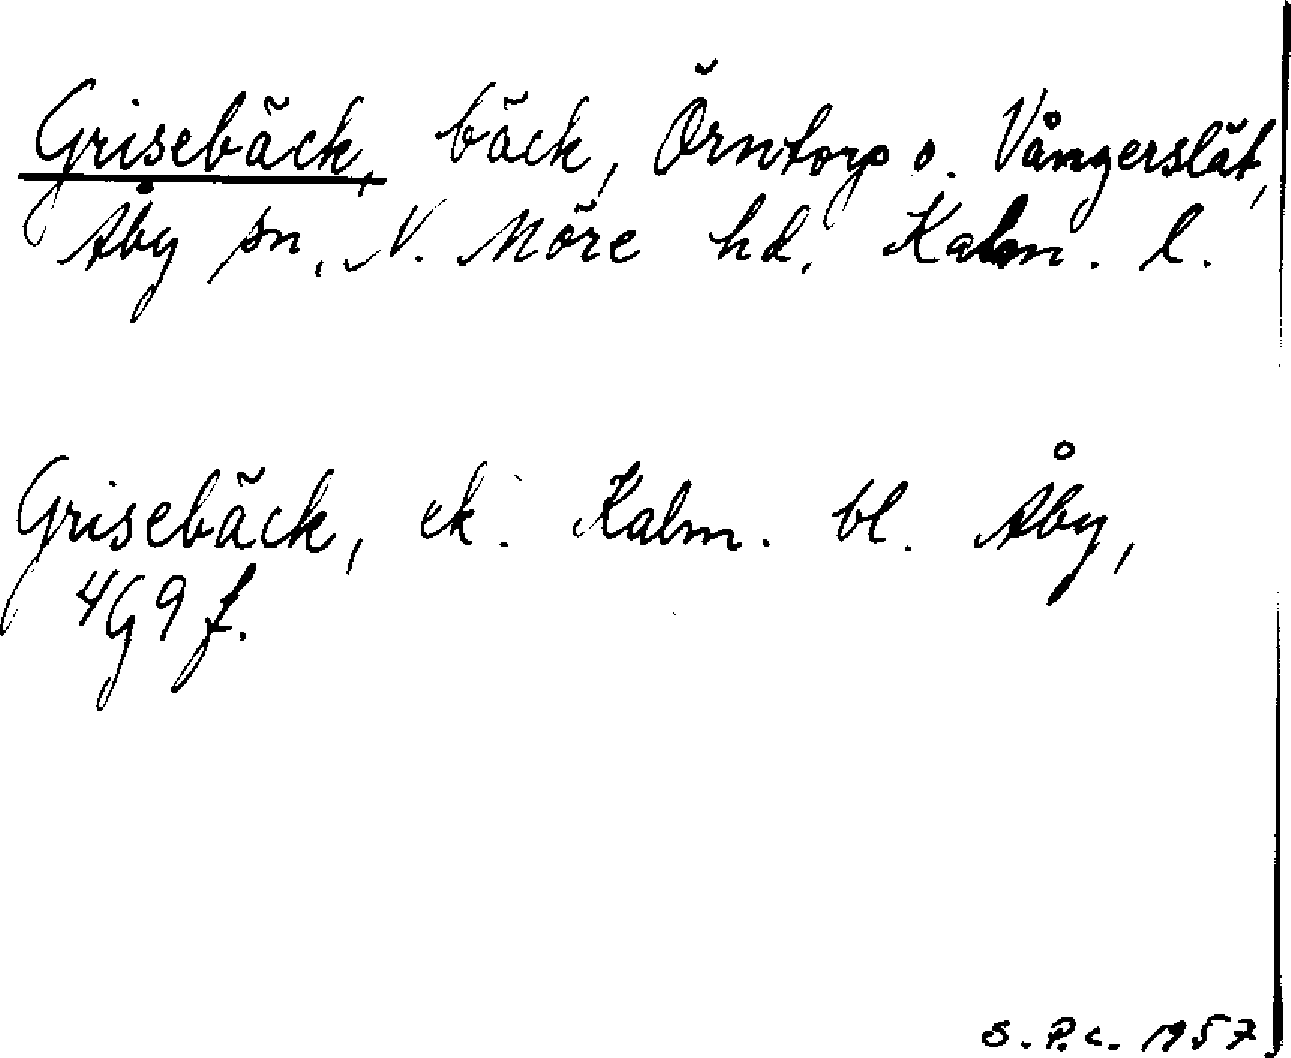 Grisebäck, bäck, Örntorp o. Vångerslät,
Åby sn, N. Möre hd, Kalm. l.
Grisebäck, ek. Kalm. bl. Åby,
4G9f.
S.P.C. 1957